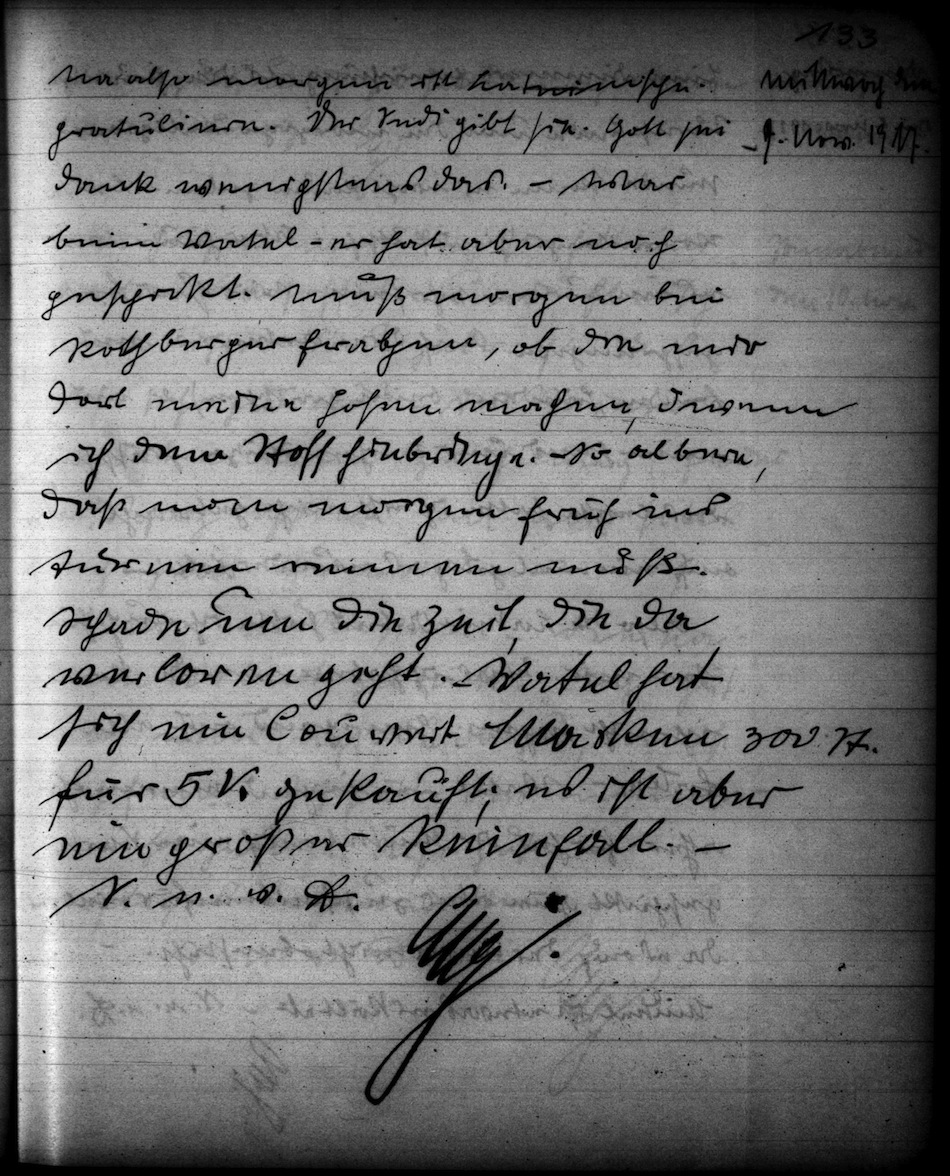 133
Mittwoch den
7. Nov. 1917.
Na also morgen ist Lateinische.
gratulieren. Der Rudi gibt sie. Gott sei
dank wenigstens das. – War
beim Vatel – er hat aber noch
geschickt. Muß morgen bei
Rothberger fragen, ob die mir
dort meine Hosen machen, wenn
ich den Stoff hinbringe. So albern,
daß man morgen früh ins
turnen rennen muß.
Schade um die Zeit, die da
verloren geht. – Vatel hat
sich ein Couvert Marken 300 St.
für 5 K. gekauft; es ist aber
ein großer Reinfall. –
N. n. v. A.